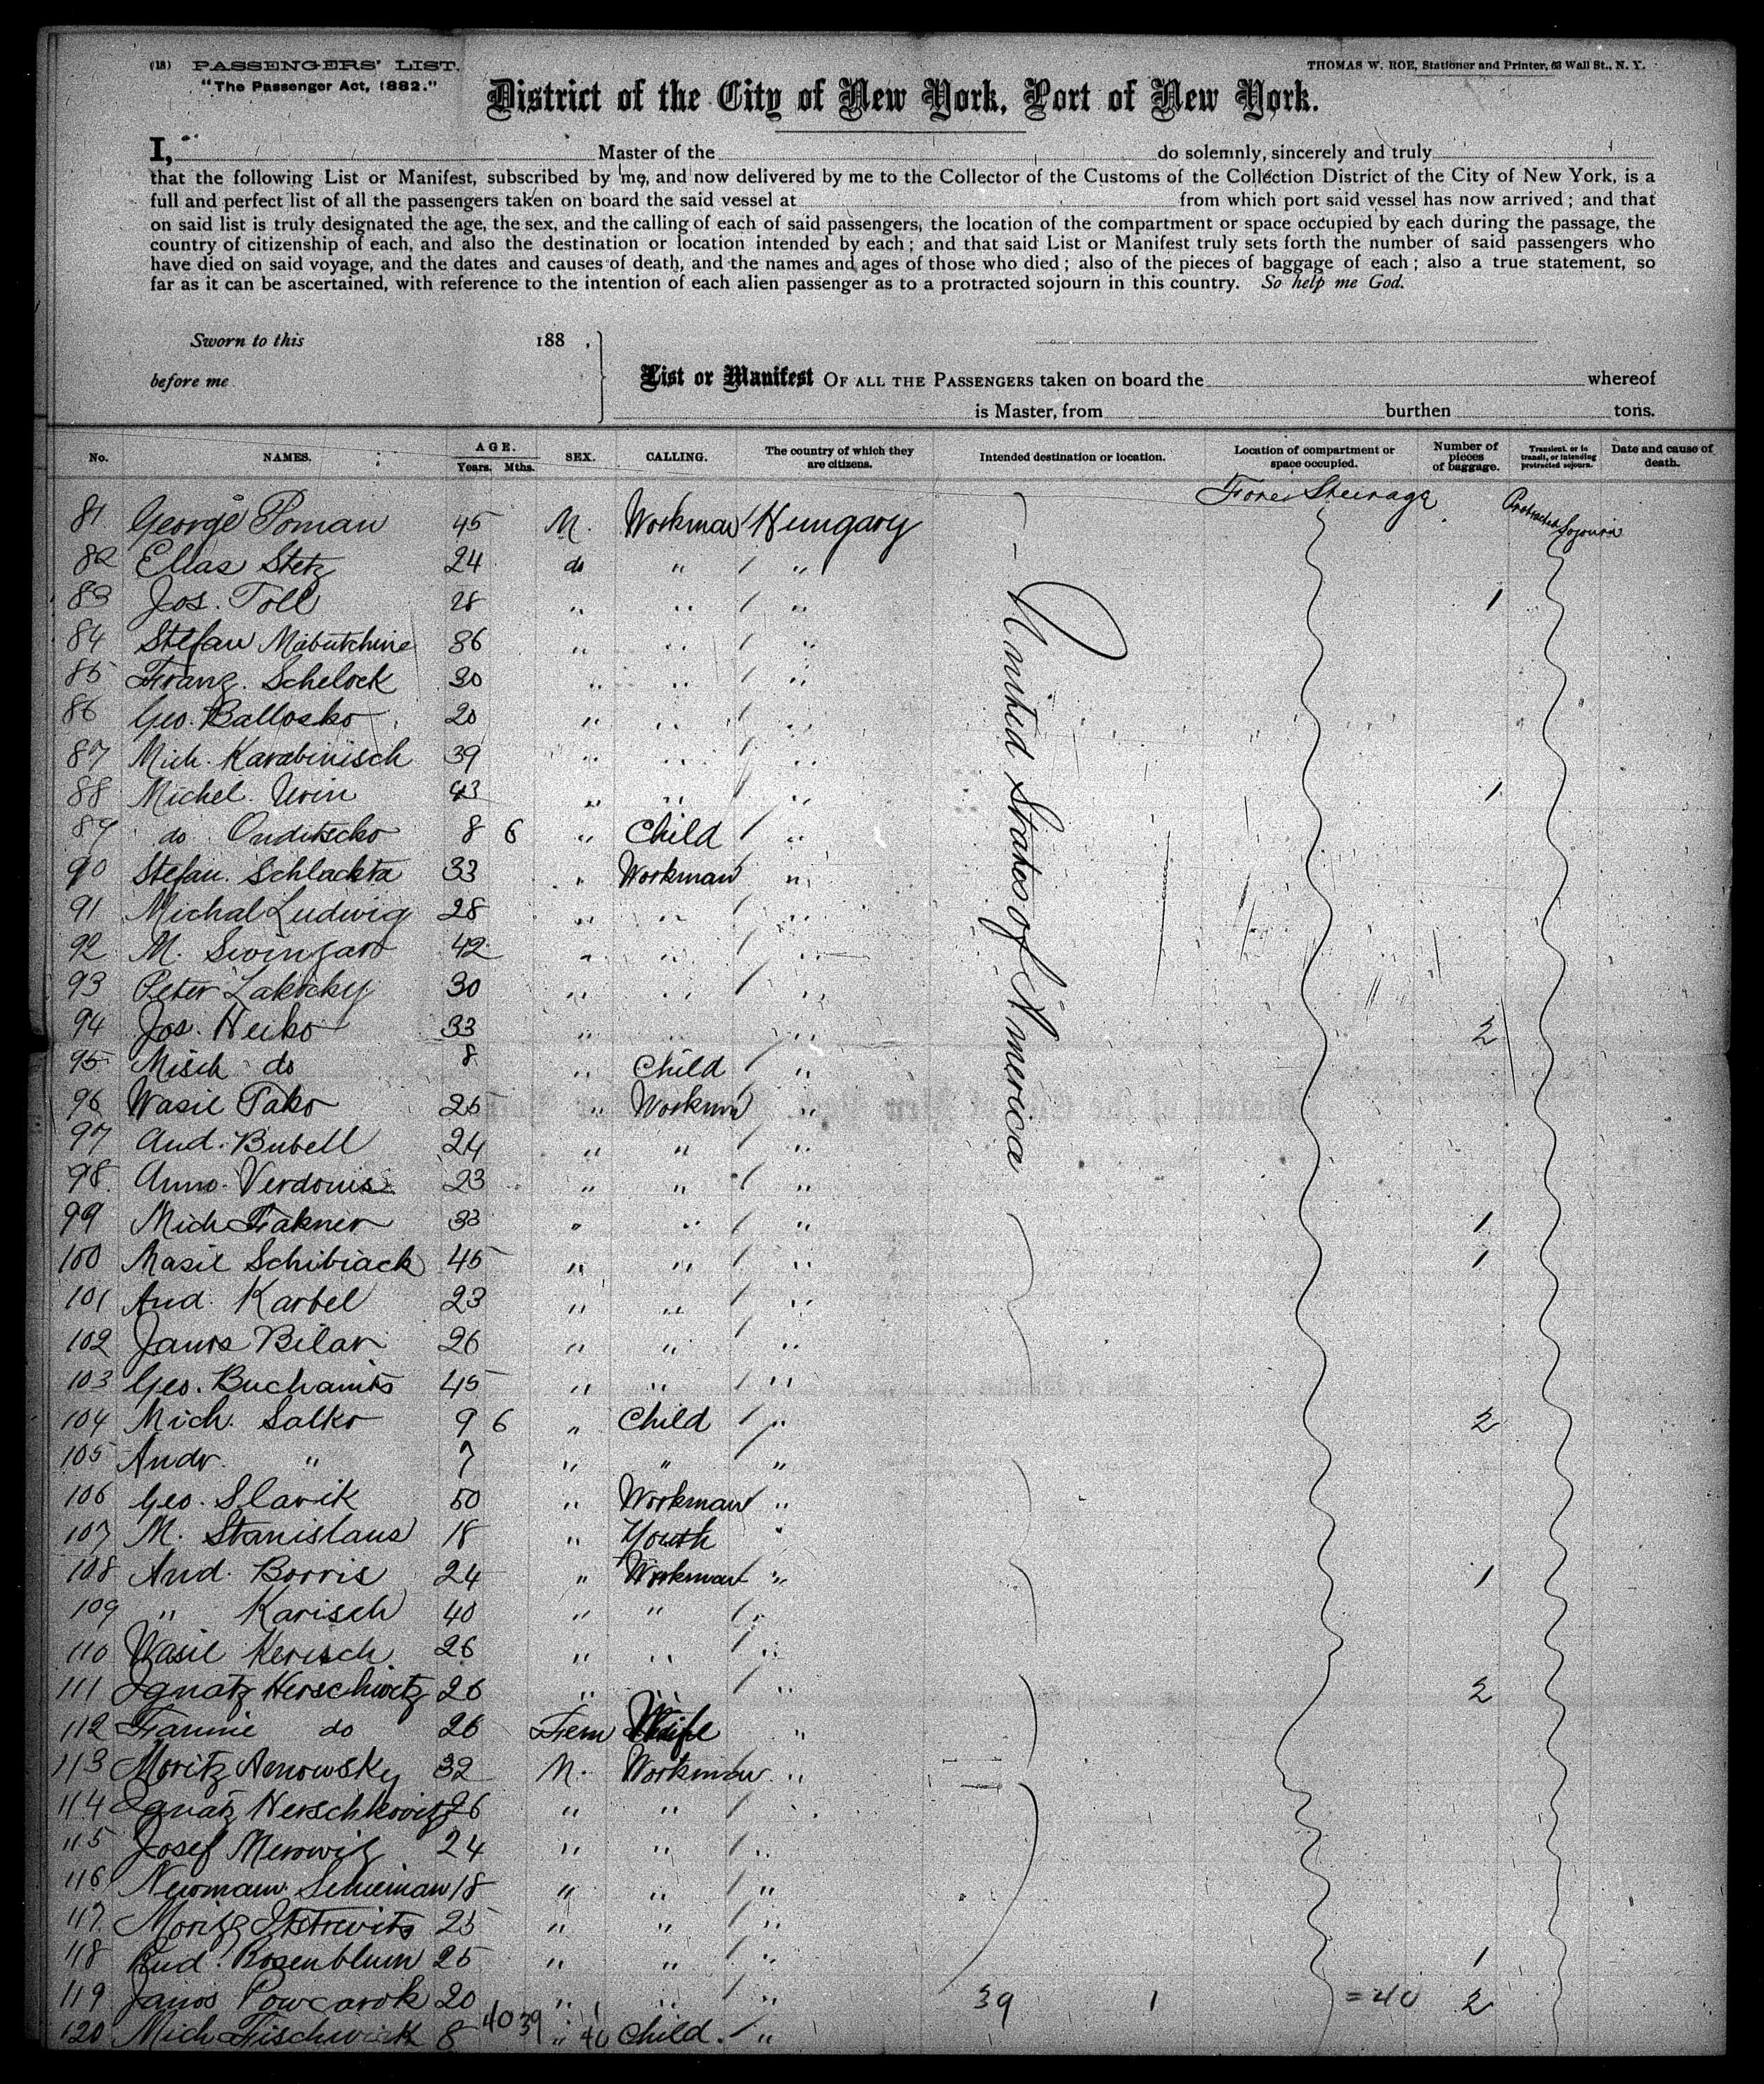 (18) PASSENGERS' LIST.
"The Passenger Act, 1882."
THOMAS W. ROE, Stationer and Printer, 63 Wall St., N. Y.
District of the City of New York, Port of New York.
I, Master of the do solemnly, sincerely and truly
that the following List or Manifest, subscribed by me, and now delivered by me to the Collector of the Customs of the Collection District of the City of New York, is a
full and perfect list of all the passengers taken on board the said vessel at from which port said vessel has now arrived ; and that
on said list is truly designated the age, the sex, and the calling of each of said passengers, the location of the compartment or space occupied by each during the passage, the
country of citizenship of each, and also the destination or location intended by each ; and that said List or Manifest truly sets forth the number of said passengers who
have died on said voyage, and the dates and causes of death, and the names and ages of those who died ; also of the pieces of baggage of each ; also a true statement, so
far as it can be ascertained, with reference to the intention of each alien passenger as to a protracted sojourn in this country. So help me God.
Sworn to this 188 ,
before me
List or Manifest OF ALL THE PASSENGERS taken on board the whereof
is Master, from burthen tons.
No. NAMES. AGE. Years. Mths. SEX. CALLING. The country of which they are citizens. Intended destination or location. Location of compartment or space occupied. Number of pieces of baggage. Transient, or in transit, or intending protracted sojourn. Date and cause of death.
Fore Steerage
81 George Poman 45 M. Workman Hungary Protracted Sojourn
United States of America
82 Elias Stetz 24 do " "
83 Jos. Toll 28 " " " 1
84 Stefan Mabutchine 36 " " "
85 Franz. Schelock 30 " " "
86 Geo. Ballosko 20 " " "
87 Mich. Karabinisch 39 " " "
88 Michel. Urin 43 " " " 1
89 do Onditscko 8 6 " Child "
90 Stefan. Schlackta 33 " Workman "
91 Michal Ludwig 28 " " "
92 M. 42 " " "
93 Peter Lakocky 30 " " "
94 Jos. Heiko 33 " " " 2
95 Misch do 8 " Child "
96 Wasil Pako 25 " Workman "
97 And. Bubell 24 " " "
98 Verdonis 23 " " "
99 Mich Fakner 33 " " " 1
100 Wasil Schibiack 45 " " " 1
101 And. Karbel 23 " " "
102 Janos Bilar 26 " " "
103 Geo. Buchanits 45 " " "
104 Mich. Salko 9 6 " Child " 2
105 Andr. " 7 " " "
106 Geo. Slavik 50 " Workman "
107 M. Stanislaus 18 " Youth "
108 And. Borris 24 " Workman " 1
109 " Karisch 40 " " "
110 Wasil Kerisch 26 " " "
111 Ignatz Herschwitz 26 " " " 2
112 Fannie do 26 Fem Wife "
113 Moritz 32 M. Workman "
114 Ignatz Herschkovitz 26 " " "
115 Josef Merowitz 24 " " "
116 Newmann 18 " " "
117 Moritz 25 " " "
118 Rosenblum 25 " " " 1
119 Janos Powcarok 20 " " " 39 1 =40 2
40 39 1
120 Mich 8 " 40 Child. "